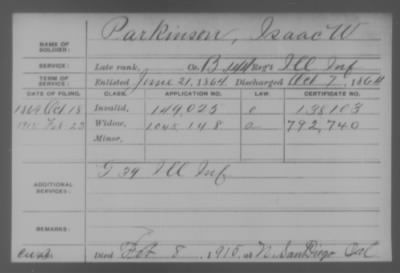 NAME OF SOLDIER: Parkinson, Isaac W
SERVICE: Late rank, Co. B Reg't Ill Inf
TERM OF SERVICE: Enlisted June 21, 1864 Discharged Oct 7, 1864
DATE OF FILING. CLASS. APPLICATION NO. LAW. CERTIFICATE NO.
1869 Oct 18 Invalid, 149,023 138103
1915 Feb 23 Widow, 1042,148 792,740
Minor,
ADDITIONAL SERVICES: G 39 Ill Inf
REMARKS:
Died Feb 8, 1915, at N. San Diego Cal